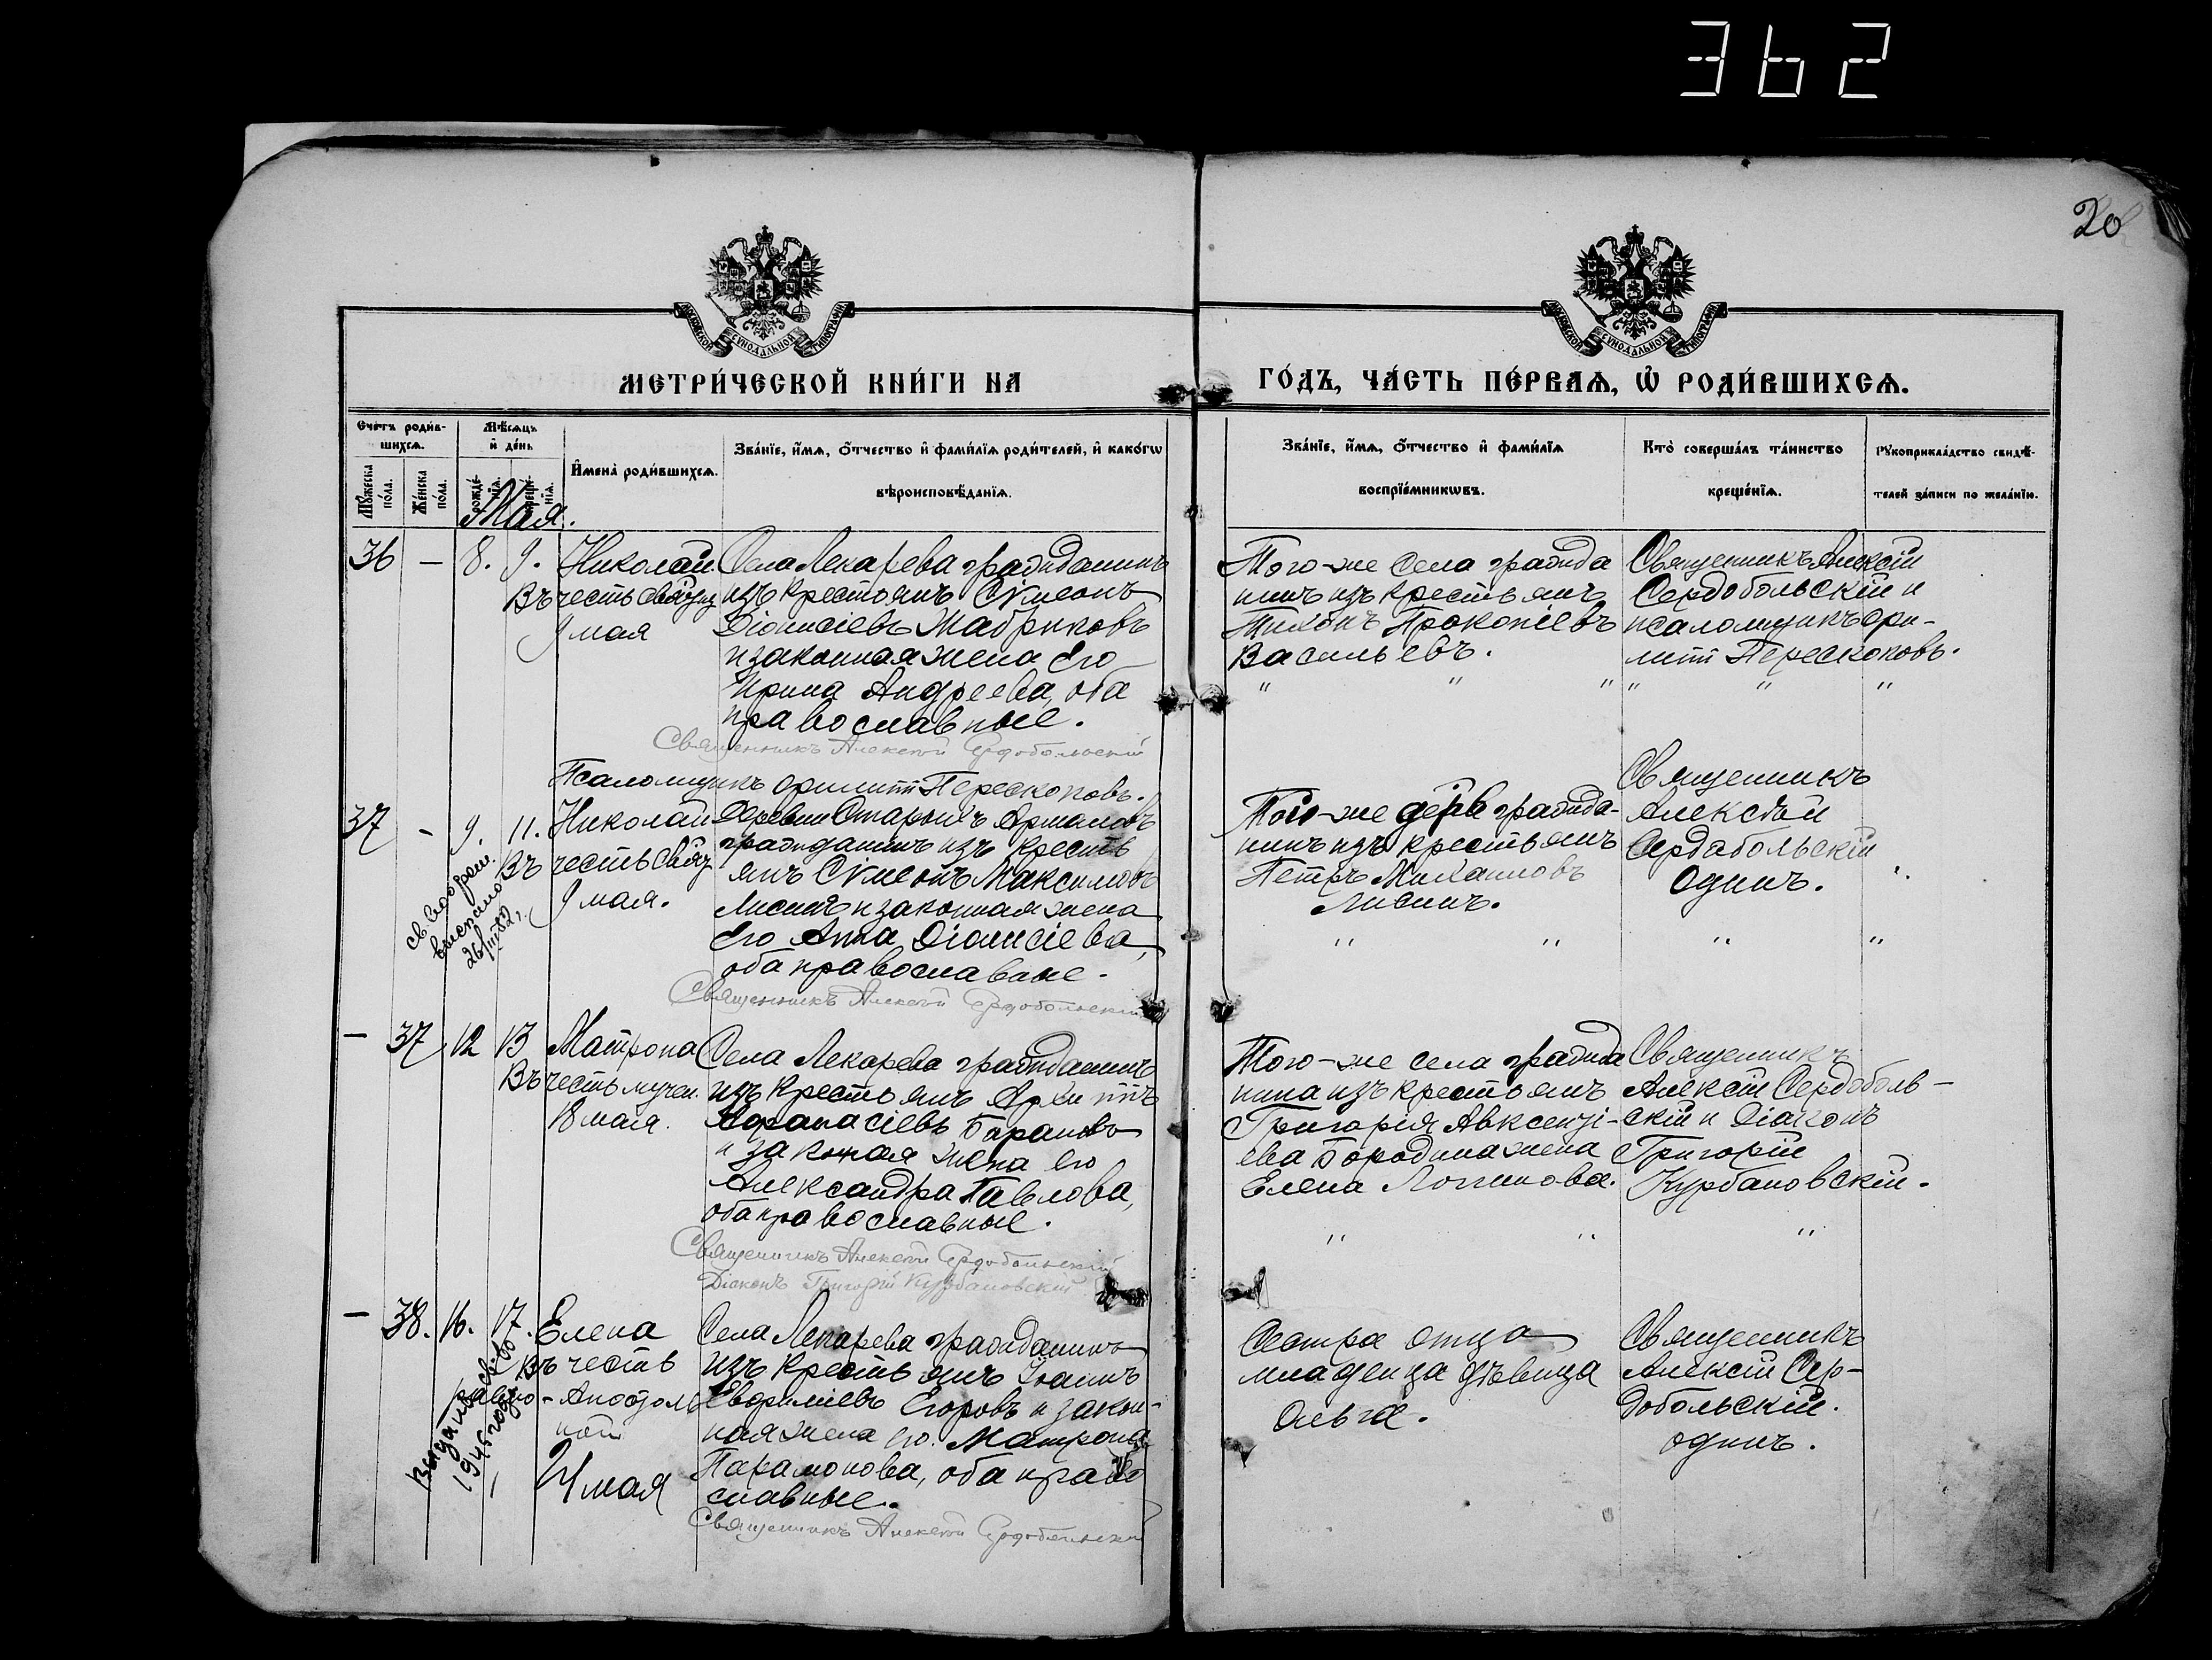 362
20
МОСКОВСКОЙ СУНОДАЛЬНОЙ ТИПОГРАФІИ
МОСКОВСКОЙ СУНОДАЛЬНОЙ ТИПОГРАФІИ
МЕТРИ́ЧЕСКОЙ КНИ́ГИ НА
ГО́ДЪ, ЧА́СТЬ ПЕ́РВАѦ, Ѽ РОДИ́ВШИХСѦ.
Сче́тъ роди́в-
шихсѧ.
Мꙋжеска по́ла.
Же́нска по́ла.
Мѣ́сѧцъ
и҆ де́нь
рожде́-
нїѧ.
креще́-
нїѧ.
И҆мена̀ роди́вшихсѧ.
Зва́нїе, и҆́мѧ, ѻ҆́тчество и҆ фами́лїѧ роди́телей, и҆ како́гѡ
вѣроисповѣ́данїѧ.
Зва́нїе, и҆́мѧ, ѻ҆́тчество и҆ фами́лїѧ
воспрїе́мникѡвъ.
Кто̀ соверша́лъ та́инство
креще́нїѧ.
Рꙋкоприкла́дство свидѣ́-
телей за́писи по жела́нїю.
Мая.
36 — 8. 9. Николай
Въ честь свят
9 мая
Села Лекарева гражданинъ
изъ крестьянъ Сѵмеонъ
Діонисіевъ Жабриковъ
и законная жена его
Ирина Андреева, оба
православные.
Священникъ Алексѣй Сердобольскій
Псаломщикъ Филиппъ Перескоковъ.
Того-же села гражда
нинъ изъ крестьянъ
Тихонъ Прокопіевъ
Васильевъ.
Священникъ Алексій
Сердобольскій и
псаломщикъ Фи-
липп Перескоковъ.
37 - 9. 11. Николай
Въ честь свят
9 мая.
Св. о
выслано
26/III 82 г.
Деревни Старыхъ
гражданинъ изъ кресть
янъ Сѵмеонъ Максимовъ
Лисинъ и законная жена
его Анна Діонисіева,
оба православные.
Священникъ Алексѣй Сердобольскій
Того-же дерв гражда-
нинъ изъ крестьянъ
Петръ Михаиловъ
Лисинъ.
Священникъ
Алексѣй
Сердобольскій
одинъ.
— 37 12 13 Матрона
Въ честь мучен.
18 мая.
Села Лекарева гражданинъ
изъ крестьянъ
Афанасіевъ Барановъ
и законая жена его
Александра Павлова,
оба православные.
Священникъ Алексѣй Сердобольскій
Діаконъ Григорій Курбановскій
Того-же села гражда
нина изъ крестьянъ
Григорія Авксенті-
ева Бородина жена
Елена Логинова.
Священникъ
Алексій Сердоболь-
скій и Діаконъ
Григорій
Курбановскій.
— 38. 16. 17. Елена
Въ честь
равно-Апостоль
ной
21 мая
Выдано св-во
1946 года
Села Лекарева гражданинъ
изъ крестьянъ Іоаннъ
Евфиміевъ Егоровъ и закон-
ная жена его Матрона
Парамонова, оба право
славные.
Священникъ Алексѣй Сердобольскій
Сестра отца
младенца дѣвица
Ольга.
Священникъ
Алексій Сер-
добольскій.
одинъ.